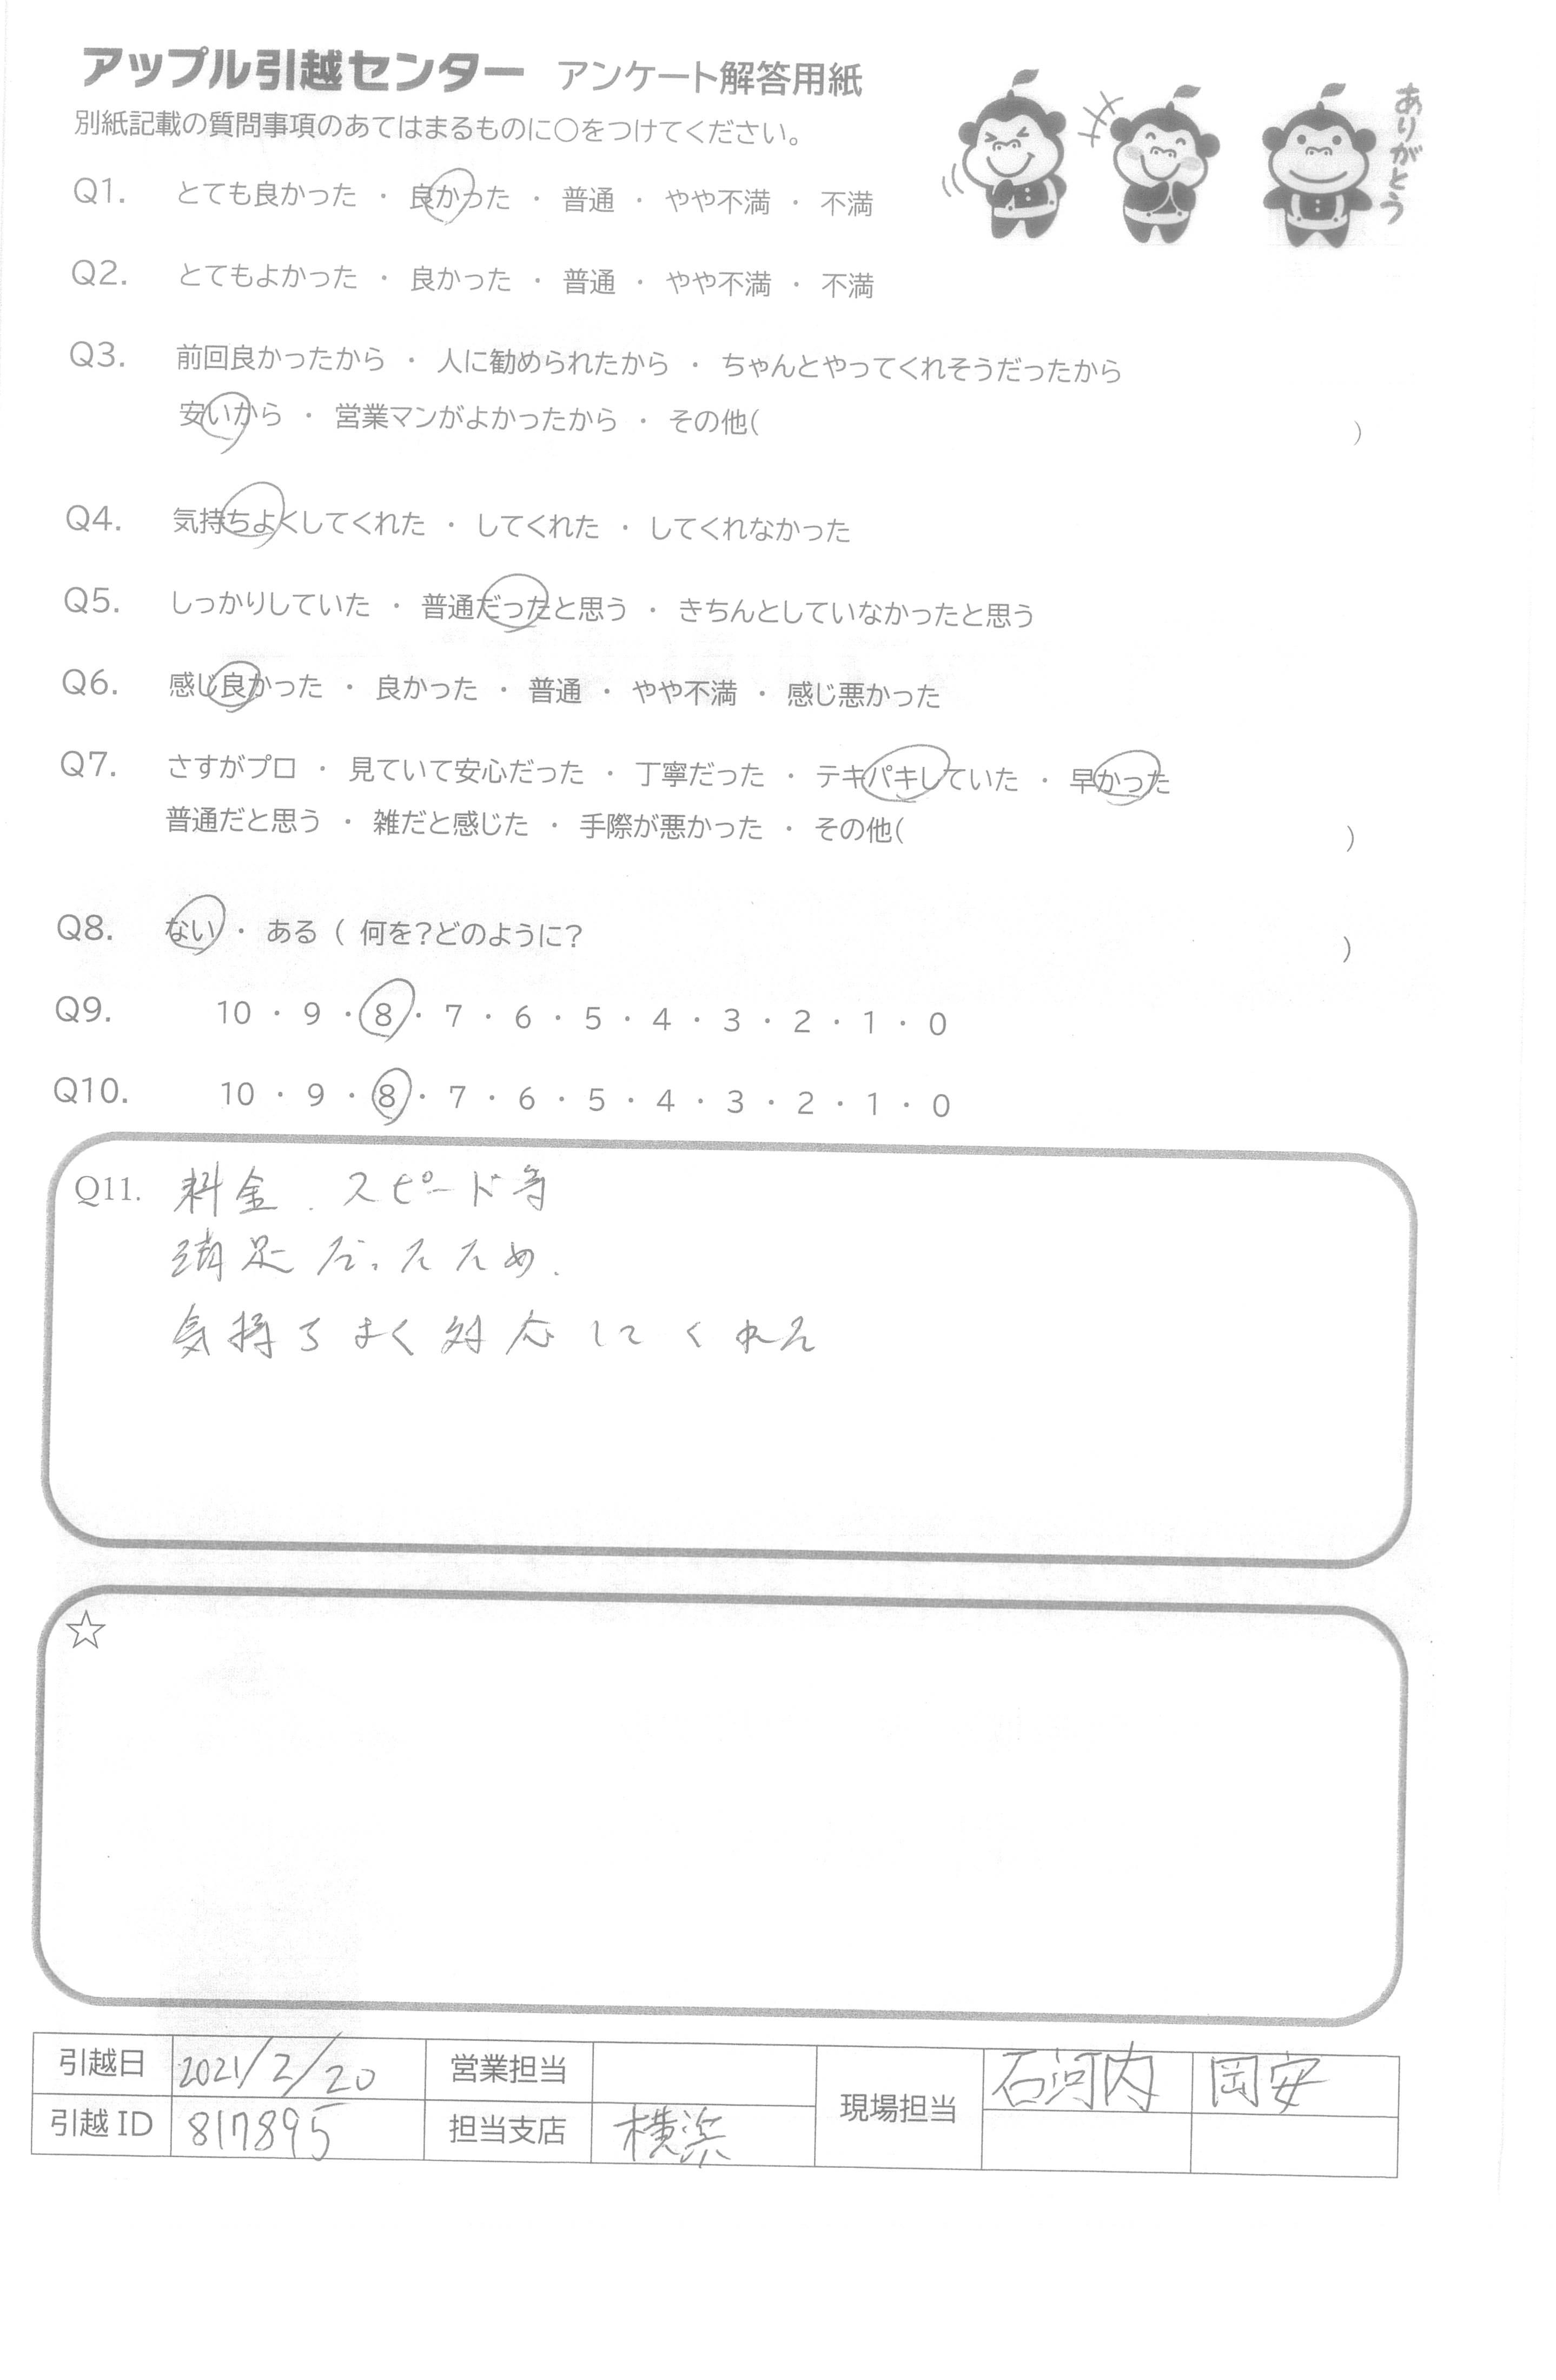 アップル引越センター アンケート解答用紙
別紙記載の質問事項のあてはまるものに○をつけてください。
ありがとう
Q1. とても良かった ・ 良かった ・ 普通 ・ やや不満 ・ 不満
Q2. とてもよかった ・ 良かった ・ 普通 ・ やや不満 ・ 不満
Q3. 前回良かったから ・ 人に勧められたから ・ ちゃんとやってくれそうだったから
安いから ・ 営業マンがよかったから ・ その他( )
Q4. 気持ちよくしてくれた ・ してくれた ・ してくれなかった
Q5. しっかりしていた ・ 普通だったと思う ・ きちんとしていなかったと思う
Q6. 感じ良かった ・ 良かった ・ 普通 ・ やや不満 ・ 感じ悪かった
Q7. さすがプロ ・ 見ていて安心だった ・ 丁寧だった ・ テキパキしていた ・ 早かった
普通だと思う ・ 雑だと感じた ・ 手際が悪かった ・ その他( )
Q8. ない ・ ある ( 何を?どのように? )
Q9. 10 ・ 9 ・ 8 ・ 7 ・ 6 ・ 5 ・ 4 ・ 3 ・ 2 ・ 1 ・ 0
Q10. 10 ・ 9 ・ 8 ・ 7 ・ 6 ・ 5 ・ 4 ・ 3 ・ 2 ・ 1 ・ 0
Q11. 料金、スピード等
満足だったため、
気持ちよく対応してくれた
☆
引越日 2021/2/20 営業担当 現場担当 石河内 岡安
引越ID 817895 担当支店 横浜